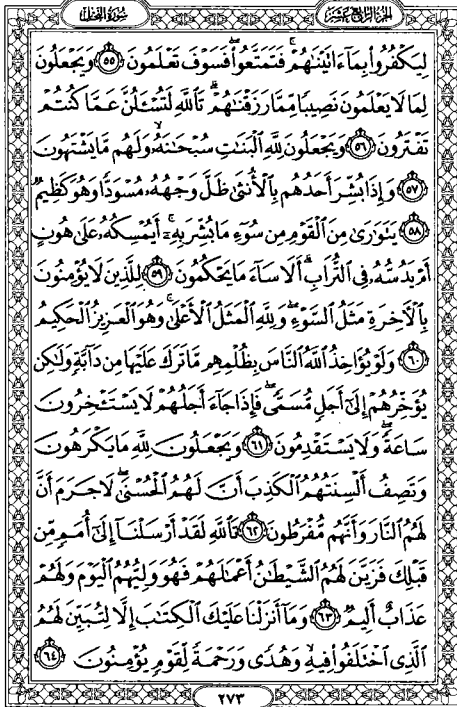 سُورَةُ النَّحْلِ الجُزْءُ الرَّابِعَ عَشَرَ
لِيَكْفُرُوا۟ بِمَآ ءَاتَيْنَٰهُمْ ۚ فَتَمَتَّعُوا۟ ۖ فَسَوْفَ تَعْلَمُونَ ٥٥ وَيَجْعَلُونَ
لِمَا لَا يَعْلَمُونَ نَصِيبًا مِّمَّا رَزَقْنَٰهُمْ ۗ تَٱللَّهِ لَتُسْـَٔلُنَّ عَمَّا كُنتُمْ
تَفْتَرُونَ ٥٦ وَيَجْعَلُونَ لِلَّهِ ٱلْبَنَٰتِ سُبْحَٰنَهُۥ ۙ وَلَهُم مَّا يَشْتَهُونَ
٥٧ وَإِذَا بُشِّرَ أَحَدُهُم بِٱلْأُنثَىٰ ظَلَّ وَجْهُهُۥ مُسْوَدًّا وَهُوَ كَظِيمٌ
٥٨ يَتَوَٰرَىٰ مِنَ ٱلْقَوْمِ مِن سُوٓءِ مَا بُشِّرَ بِهِۦٓ ۚ أَيُمْسِكُهُۥ عَلَىٰ هُونٍ
أَمْ يَدُسُّهُۥ فِى ٱلتُّرَابِ ۗ أَلَا سَآءَ مَا يَحْكُمُونَ ٥٩ لِلَّذِينَ لَا يُؤْمِنُونَ
بِٱلْـَٔاخِرَةِ مَثَلُ ٱلسَّوْءِ ۖ وَلِلَّهِ ٱلْمَثَلُ ٱلْأَعْلَىٰ ۚ وَهُوَ ٱلْعَزِيزُ ٱلْحَكِيمُ
٦٠ وَلَوْ يُؤَاخِذُ ٱللَّهُ ٱلنَّاسَ بِظُلْمِهِم مَّا تَرَكَ عَلَيْهَا مِن دَآبَّةٍ وَلَٰكِن
يُؤَخِّرُهُمْ إِلَىٰٓ أَجَلٍ مُّسَمًّى ۖ فَإِذَا جَآءَ أَجَلُهُمْ لَا يَسْتَـْٔخِرُونَ
سَاعَةً ۖ وَلَا يَسْتَقْدِمُونَ ٦١ وَيَجْعَلُونَ لِلَّهِ مَا يَكْرَهُونَ
وَتَصِفُ أَلْسِنَتُهُمُ ٱلْكَذِبَ أَنَّ لَهُمُ ٱلْحُسْنَىٰ ۖ لَا جَرَمَ أَنَّ
لَهُمُ ٱلنَّارَ وَأَنَّهُم مُّفْرَطُونَ ٦٢ تَٱللَّهِ لَقَدْ أَرْسَلْنَآ إِلَىٰٓ أُمَمٍ مِّن
قَبْلِكَ فَزَيَّنَ لَهُمُ ٱلشَّيْطَٰنُ أَعْمَٰلَهُمْ فَهُوَ وَلِيُّهُمُ ٱلْيَوْمَ وَلَهُمْ
عَذَابٌ أَلِيمٌ ٦٣ وَمَآ أَنزَلْنَا عَلَيْكَ ٱلْكِتَٰبَ إِلَّا لِتُبَيِّنَ لَهُمُ
ٱلَّذِى ٱخْتَلَفُوا۟ فِيهِ ۙ وَهُدًى وَرَحْمَةً لِّقَوْمٍ يُؤْمِنُونَ ٦٤
٢٧٣